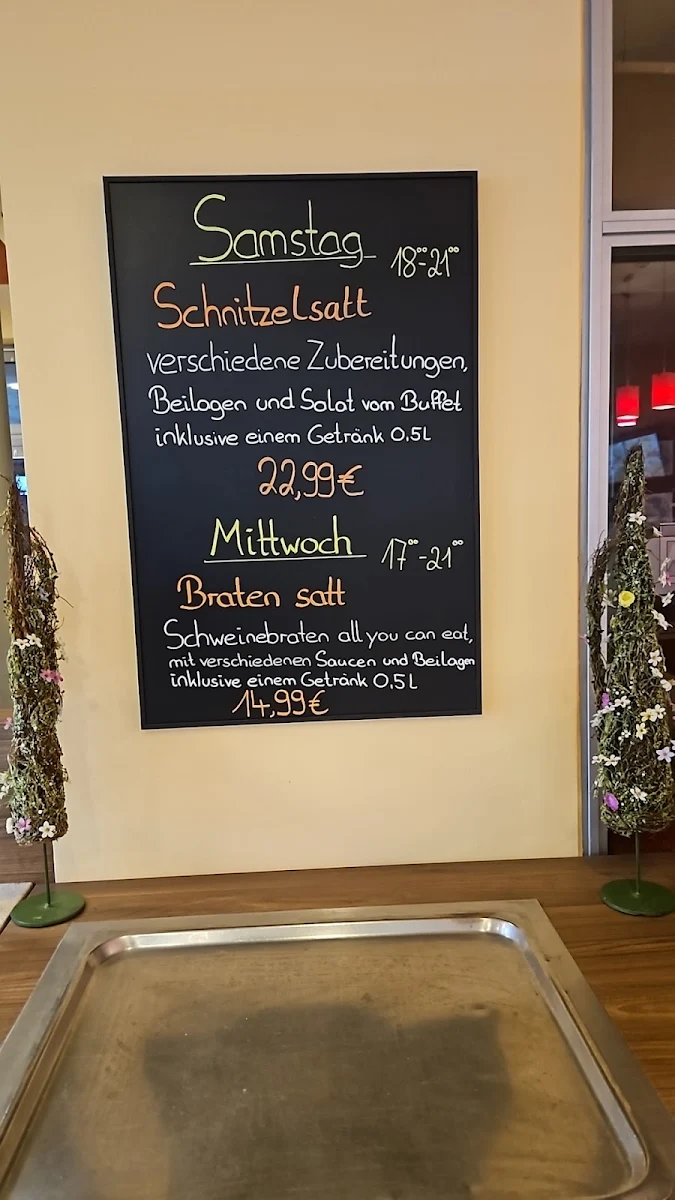 Samstag 18°°-21°°
Schnitzelsatt
verschiedene Zubereitungen,
Beilagen und Salat vom Buffet
inklusive einem Getränk 0,5L
22,99€
Mittwoch 17°°-21°°
Braten satt
Schweinebraten all you can eat,
mit verschiedenen Saucen und Beilagen
inklusive einem Getränk 0,5L
14,99€